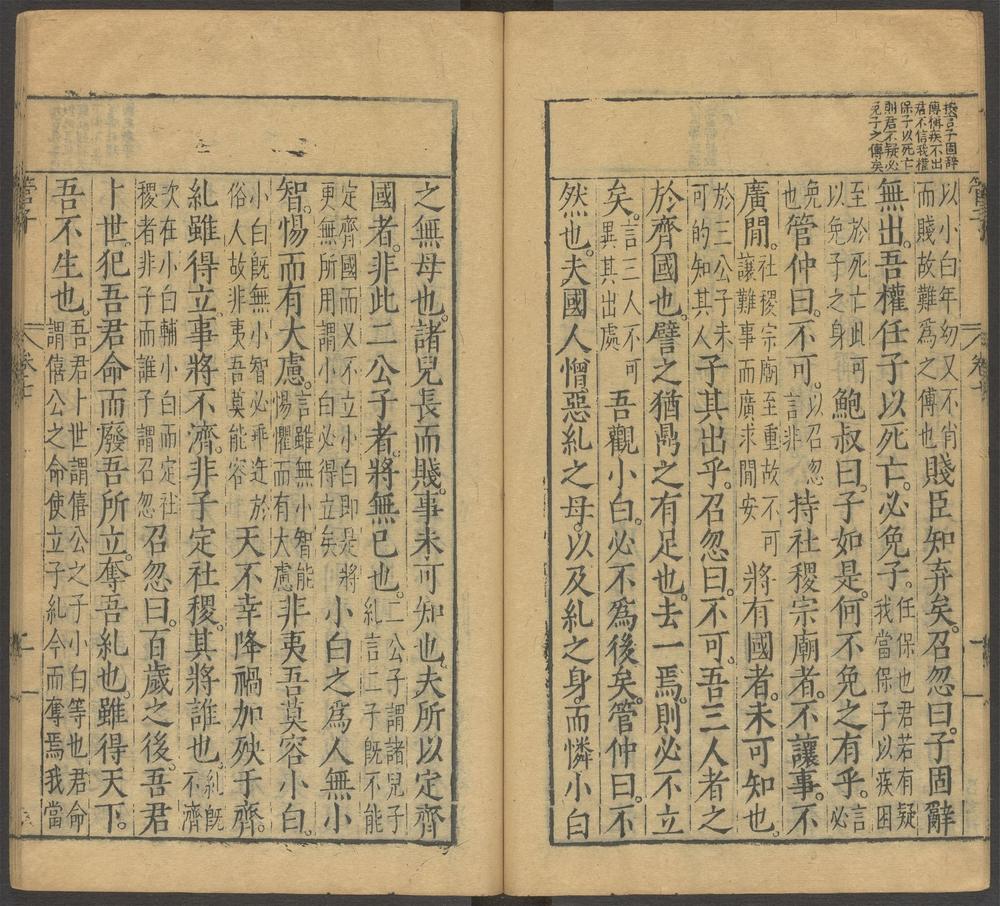 按言子固辭
傅稱疾不出
君不信我權
保子以死亡
則君不疑必
免子之傅矣
卷七
一
以小白年幼又不肖而賤故難爲之傅也賤臣知弃矣。召忽曰。子固辭
無出。吾權任子以死亡。必免子。任保也君若有疑我當保子以疾困
至於死亡此可以免子之身鮑叔曰。子如是。何不免之有乎。言必
免也管仲曰。不可。以召忽言非持社稷宗廟者。不讓事。不
廣閒。社稷宗廟至重故不可讓難事而廣求閒安將有國者。未可知也。
於三公子未可的知其人子其出乎。召忽曰。不可。吾三人者之
於齊國也。譬之猶鼎之有足也。去一焉。則必不立
矣。言三人不可異其出處吾觀小白。必不爲後矣。管仲曰。不
然也。夫國人憎惡糺之母。以及糺之身。而憐小白
之無母也。諸兒長而賤。事未可知也。夫所以定齊
國者。非此二公子者。將無已也。二公子謂諸兒子糺言二子既不能
定齊國而又不立小白即是將更無所用謂小白必得立矣小白之爲人無小
智。惕而有大慮。言雖無小智能惕懼而有大慮非夷吾莫容小白。
小白既無小智必乖迕於俗人故非夷吾莫能容天不幸降禍加殃于齊。
糺雖得立。事將不濟。非子定社稷。其將誰也。糺既不濟
次在小白輔小白而定社稷者非子而誰子謂召忽召忽曰。百歲之後。吾君
卜世。犯吾君命而廢吾所立。奪吾糺也。雖得天下。
吾不生也。吾君卜世謂僖公之子小白等也君命謂僖公之命使立子糺今而奪焉我當
管子
卷七
二